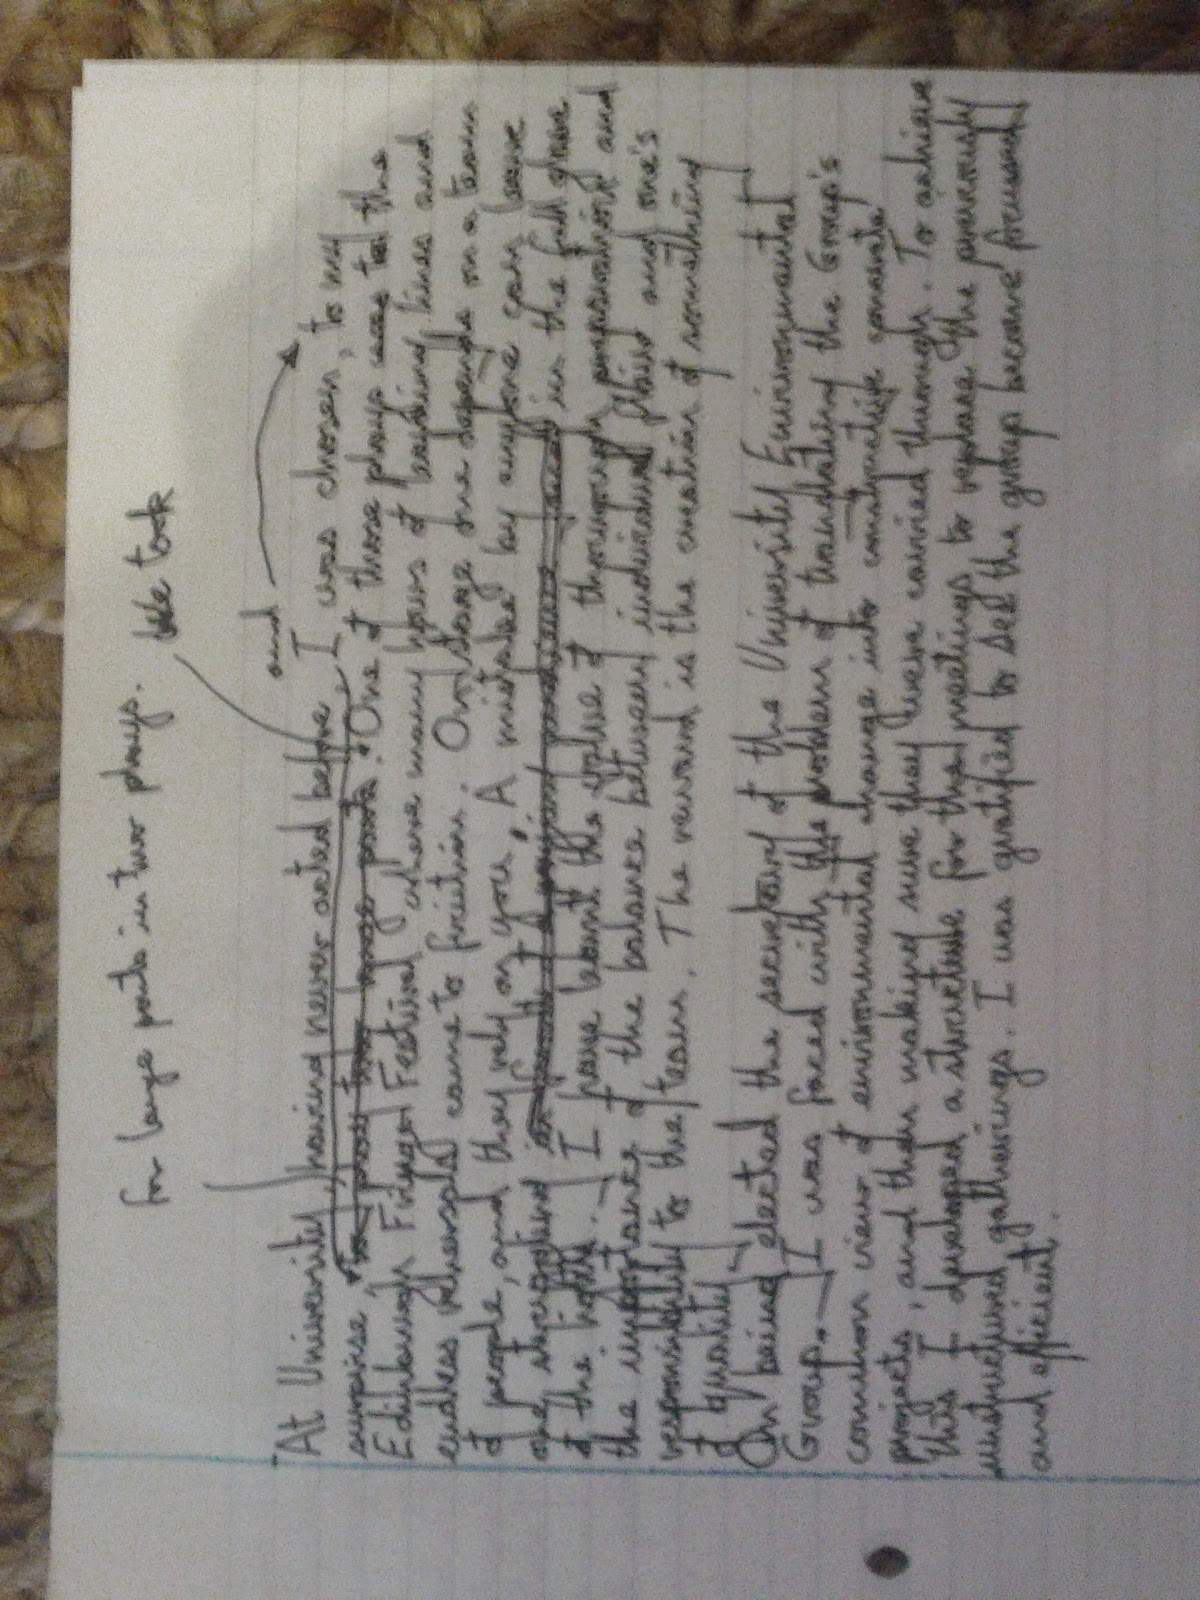 for large parts in two plays. We took
and
"At University, having never acted before I was chosen, to my
surprise, to play two large parts. One of those plays was to the
Edinburgh Fringe Festival where many hours of learning lines and
endless rehearsals came to fruition. On stage one depends on a team
of people, and they rely on you. A mistake by anyone can leave
one stranded in the full glare
of the lights. I have learnt the value of thorough preparation and
the importance of the balance between individual flair and one's
responsibility to the team. The reward is the creation of something
of quality.
On being elected the secretary of the University Environmental
Group, I was faced with the problem of translating the Group's
common view of environmental change into constructive
projects, and then making sure they were carried through. To achieve
this I developed a structure for the meetings to replace the previously
unstructured gatherings. I was gratified to see the group become focused
and efficient.